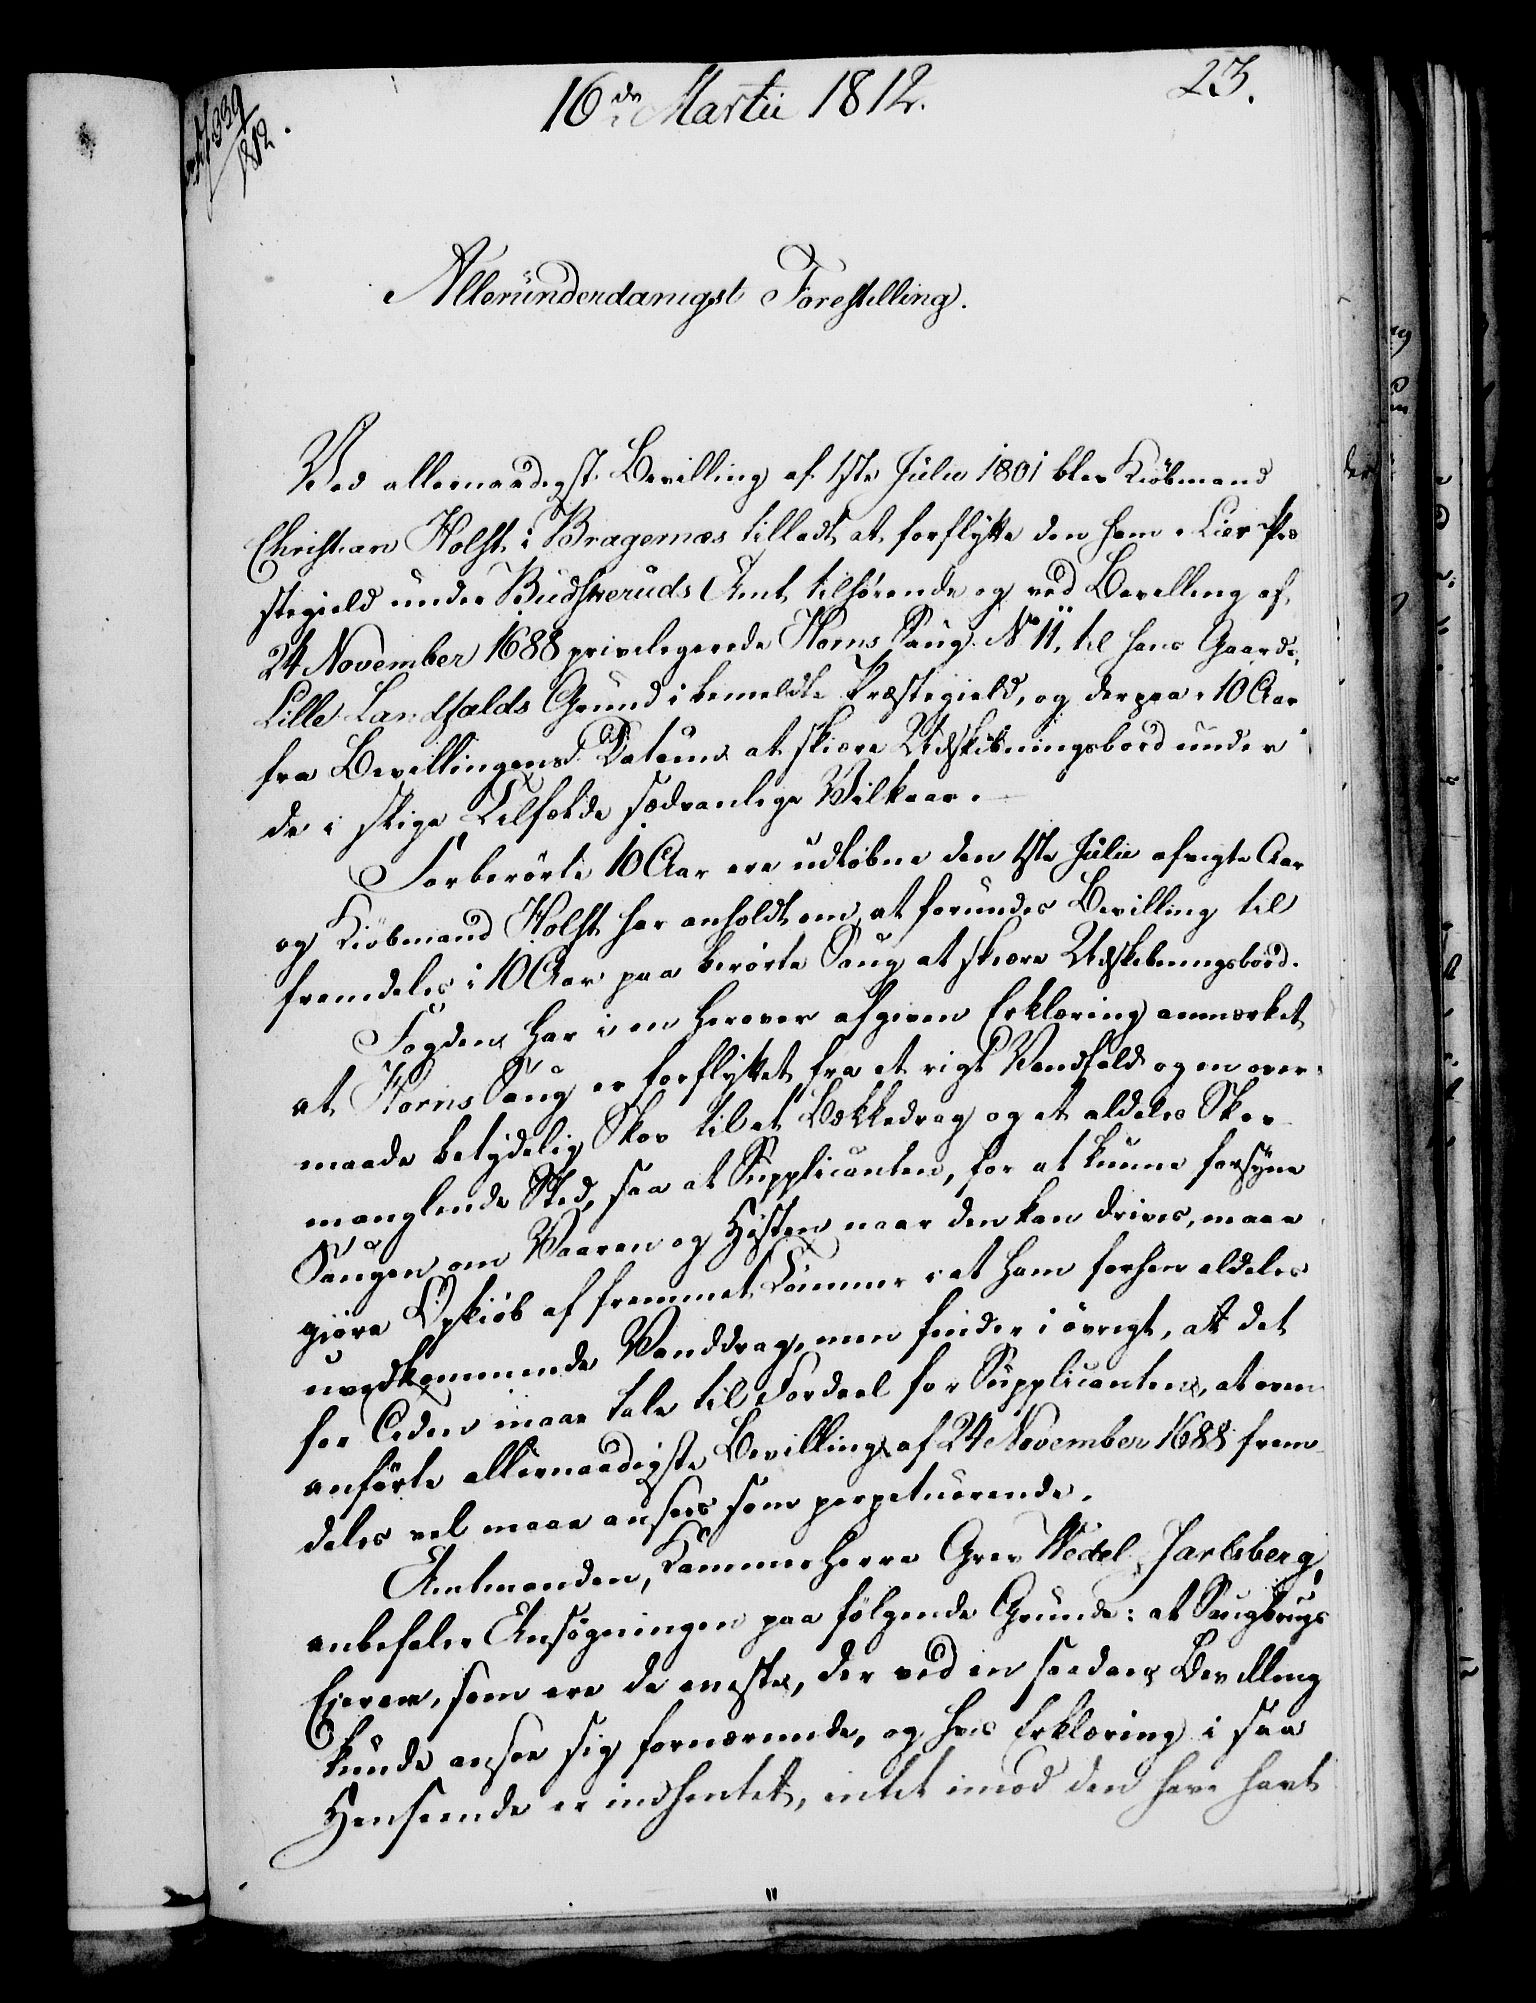 16de Martii 1812.
23.
339
1812.
Alleründerdanigst Forestilling.
Ved allernaadigst Bevilling af 1ste Julii 1801 blev Kiöbmand
Christian Holst i Bragernæs tilladt at forflytte den ham i Lier Præ
stegield under Budskeruds Amt tilhörende og ved Bevilling af
24 November 1688 privilegerede Horns Saug No 11, til hans Gaards
Lille Landfalds Grund i bemeldte Præstegield, og derpaa i 10 Aar
fra Bevillingens Datum at skiære Udskibningsbord under
de i slige Tilfælde sædvanlige Vilkaar.
Forberörte 10 Aar ere udlöbne den 1ste Julii afvigte Aar
og Kiöbmand Holst har anholdt om, at forundes Bevilling til
fremdeles i 10 Aar paa berörte Saug at skiære Udskibningsbord.
Fogden har i en herover afgiven Erklæring anmærket
at Horns Saug er forflyttet fra et rigt Vandfald og en over-
maade betydelig Skov til et Bækkedrag og et aldeles Skov-
manglende Sted, saa at Supplicanten, for at kunne forsyne
Saugen om Vaaren og Hösten naar den kan drives, maae
giöre Opkiöb af fremmet Tömmer i et ham forhen aldeles
uvedkommende Vanddrag, men finder i övrigt, at det
for Eeden maae tale til Fordeel for Supplicanten, at oven-
anförte allernaadigste Bevilling af 24 November 1688 frem-
deles vel maae ansees som perpetuerende.
Amtmanden, Kammerherre Grev Wedel Jarlsberg,
anbefaler Ansögningen paa fölgende Grunde: at Saugbrugs
Eierne, som ere de eneste, der ved en saadan Bevilling
kunde ansee sig fornærmede, og hvis Erklæring i saa
Henseende er indhentet, intet imod den have havt
"